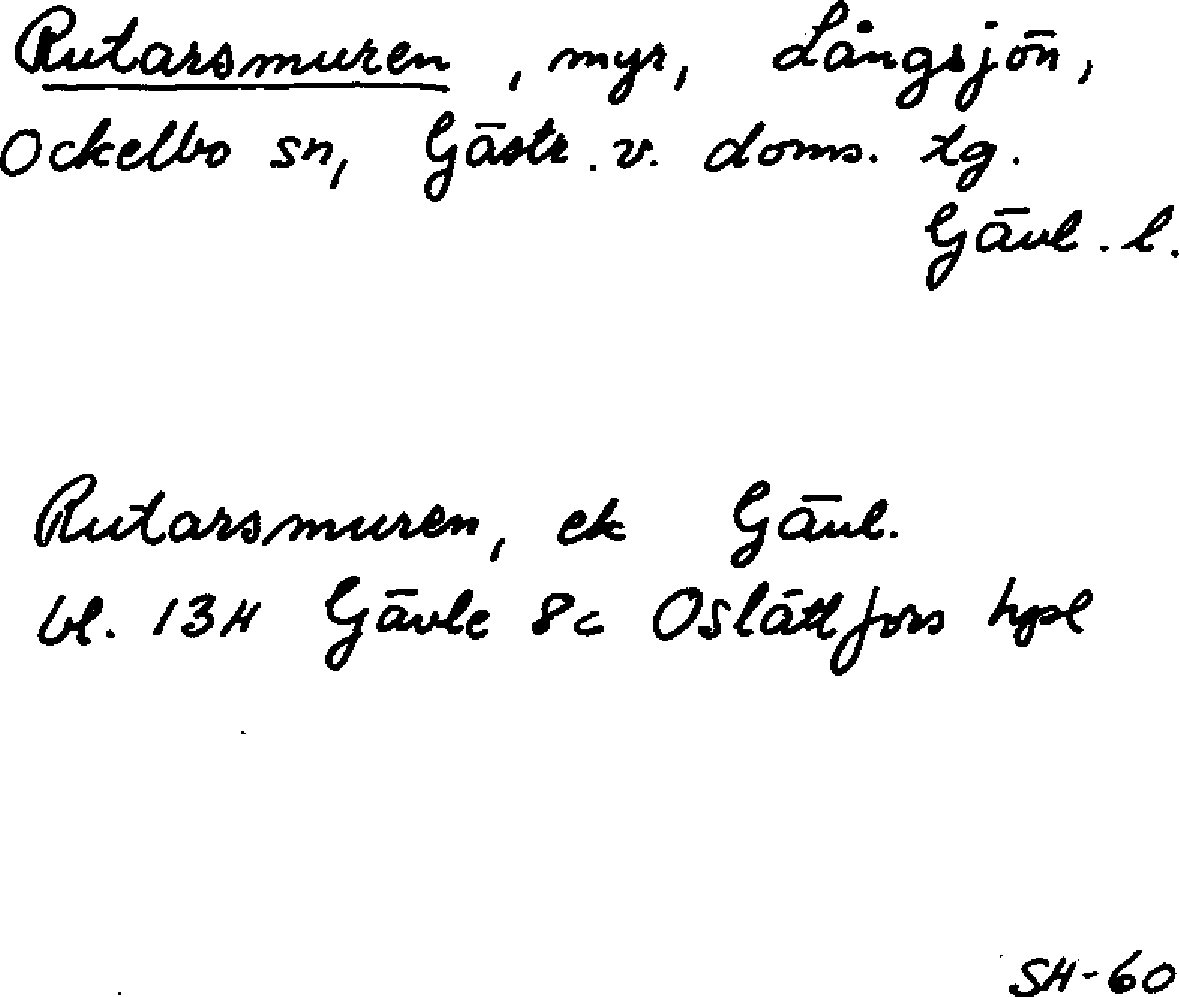 Rutarsmuren, myr, Långsjön,
Ockelbo sn, Gästr. v. doms. tg.
Gävl. l.
Rutarsmuren, ek Gävl.
bl. 13H Gävle 8c Oslättfors hpl
SH-60